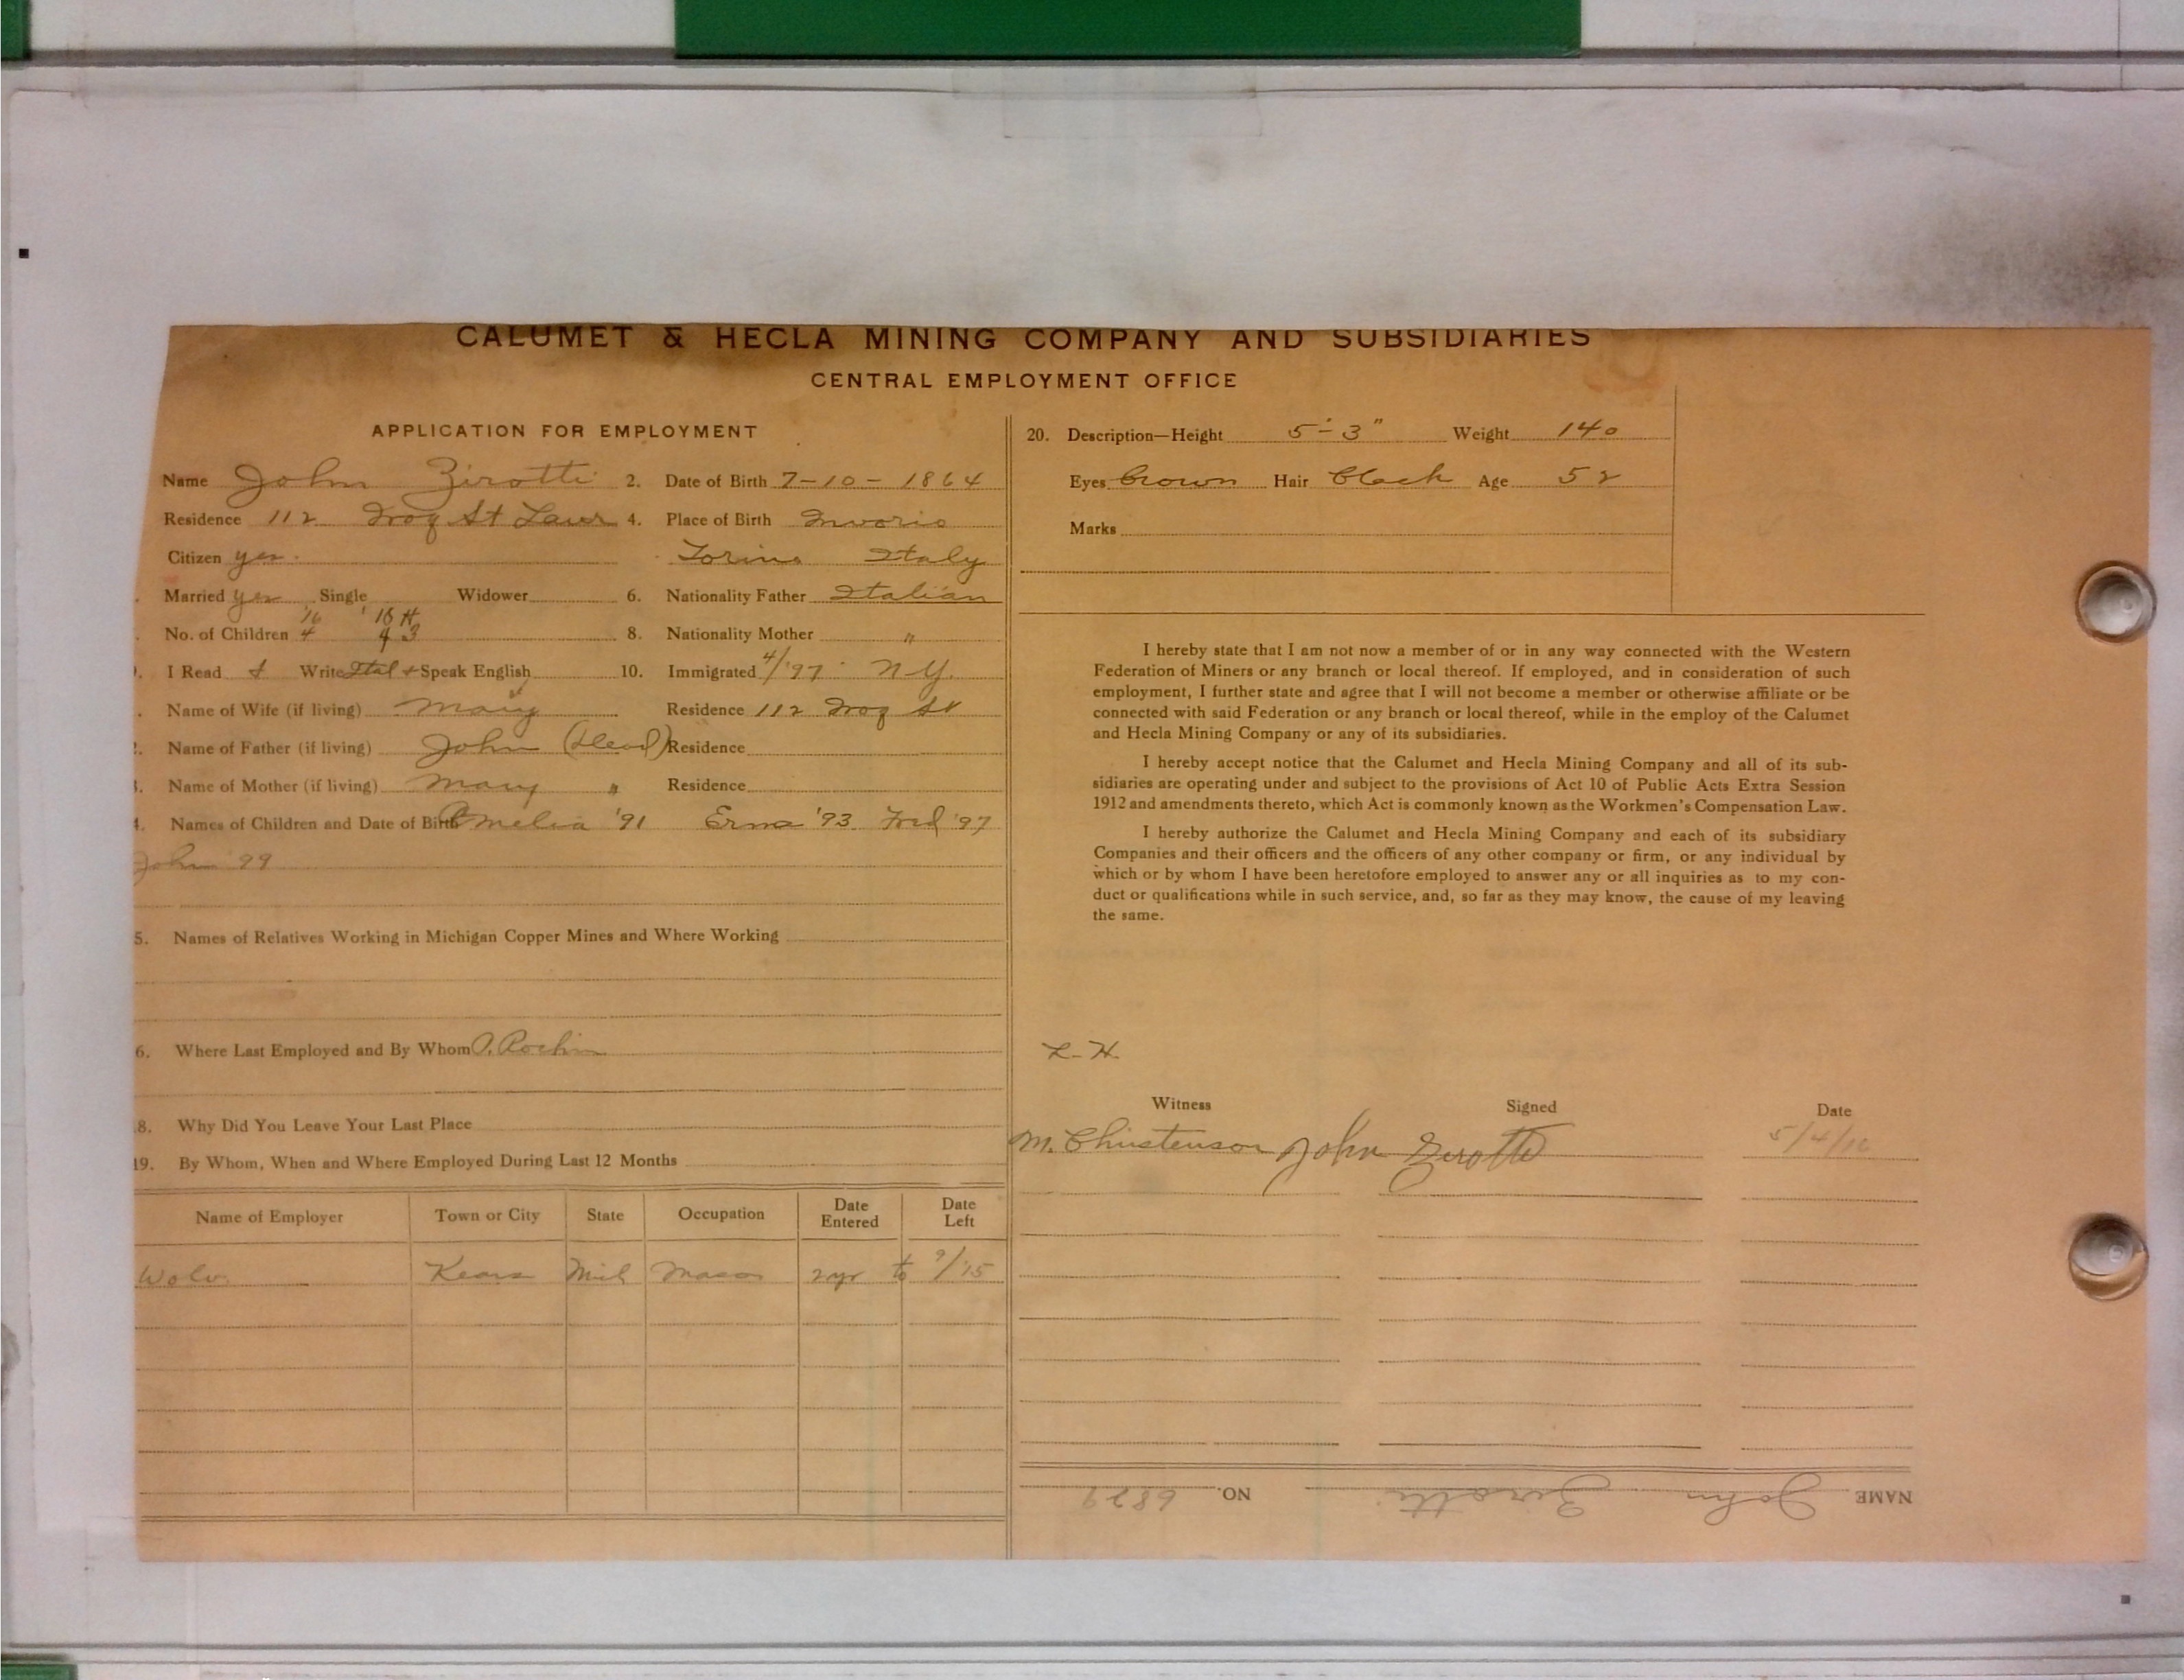 CALUMET & HECLA MINING COMPANY AND SUBSIDIARIES
CENTRAL EMPLOYMENT OFFICE
APPLICATION FOR EMPLOYMENT
Name John Zirotti 2. Date of Birth 7-10-1864
Residence 112 St Laur 4. Place of Birth Invorio
Citizen yes. Torino Italy
Married yes Single Widower 6. Nationality Father Italian
'16
No. of Children 4 8. Nationality Mother "
I Read & Write Ital & Speak English 10. Immigrated 4/'97 N.Y.
Name of Wife (if living) Mary Residence 112 St
Name of Father (if living) John (Dead) Residence
Name of Mother (if living) Mary " Residence
4. Names of Children and Date of Birth Amelia '91 Erna '93 Fred '97
John '99
5. Names of Relatives Working in Michigan Copper Mines and Where Working
6. Where Last Employed and By Whom
8. Why Did You Leave Your Last Place
19. By Whom, When and Where Employed During Last 12 Months
Name of Employer Town or City State Occupation Date Entered Date Left
Wolv. Kears Mich Mason 2yr to 9/'15
20. Description—Height 5'-3" Weight 140
Eyes brown Hair black Age 52
Marks
I hereby state that I am not now a member of or in any way connected with the Western
Federation of Miners or any branch or local thereof. If employed, and in consideration of such
employment, I further state and agree that I will not become a member or otherwise affiliate or be
connected with said Federation or any branch or local thereof, while in the employ of the Calumet
and Hecla Mining Company or any of its subsidiaries.
I hereby accept notice that the Calumet and Hecla Mining Company and all of its sub-
sidiaries are operating under and subject to the provisions of Act 10 of Public Acts Extra Session
1912 and amendments thereto, which Act is commonly known as the Workmen's Compensation Law.
I hereby authorize the Calumet and Hecla Mining Company and each of its subsidiary
Companies and their officers and the officers of any other company or firm, or any individual by
which or by whom I have been heretofore employed to answer any or all inquiries as to my con-
duct or qualifications while in such service, and, so far as they may know, the cause of my leaving
the same.
L-H.
Witness Signed Date
M. Christenson John Zirotti 5/4/16
NAME John Zirotti NO. 6829